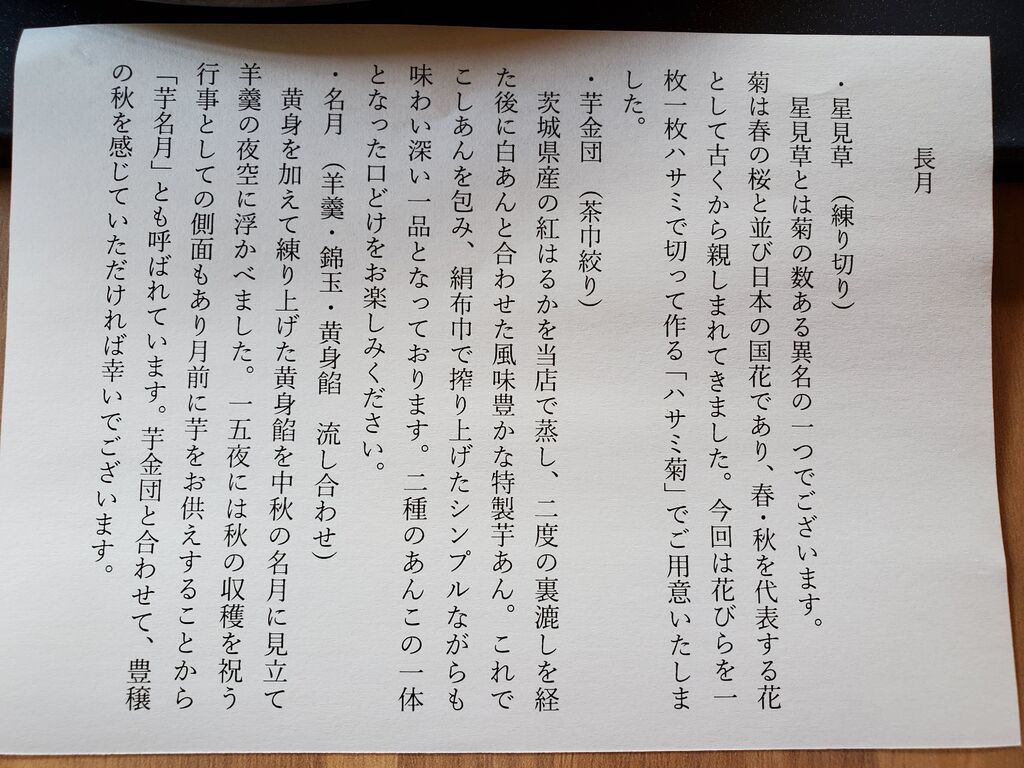 長月
・星見草　（練り切り）
星見草とは菊の数ある異名の一つでございます。
菊は春の桜と並び日本の国花であり、春・秋を代表する花
として古くから親しまれてきました。今回は花びらを一
枚一枚ハサミで切って作る「ハサミ菊」でご用意いたしま
した。
・芋金団　（茶巾絞り）
茨城県産の紅はるかを当店で蒸し、二度の裏漉しを経
た後に白あんと合わせた風味豊かな特製芋あん。これで
こしあんを包み、絹布巾で搾り上げたシンプルながらも
味わい深い一品となっております。二種のあんこの一体
となった口どけをお楽しみください。
・名月　（羊羹・錦玉・黄身餡　流し合わせ）
黄身を加えて練り上げた黄身餡を中秋の名月に見立て
羊羹の夜空に浮かべました。一五夜には秋の収穫を祝う
行事としての側面もあり月前に芋をお供えすることから
「芋名月」とも呼ばれています。芋金団と合わせて、豊穣
の秋を感じていただければ幸いでございます。